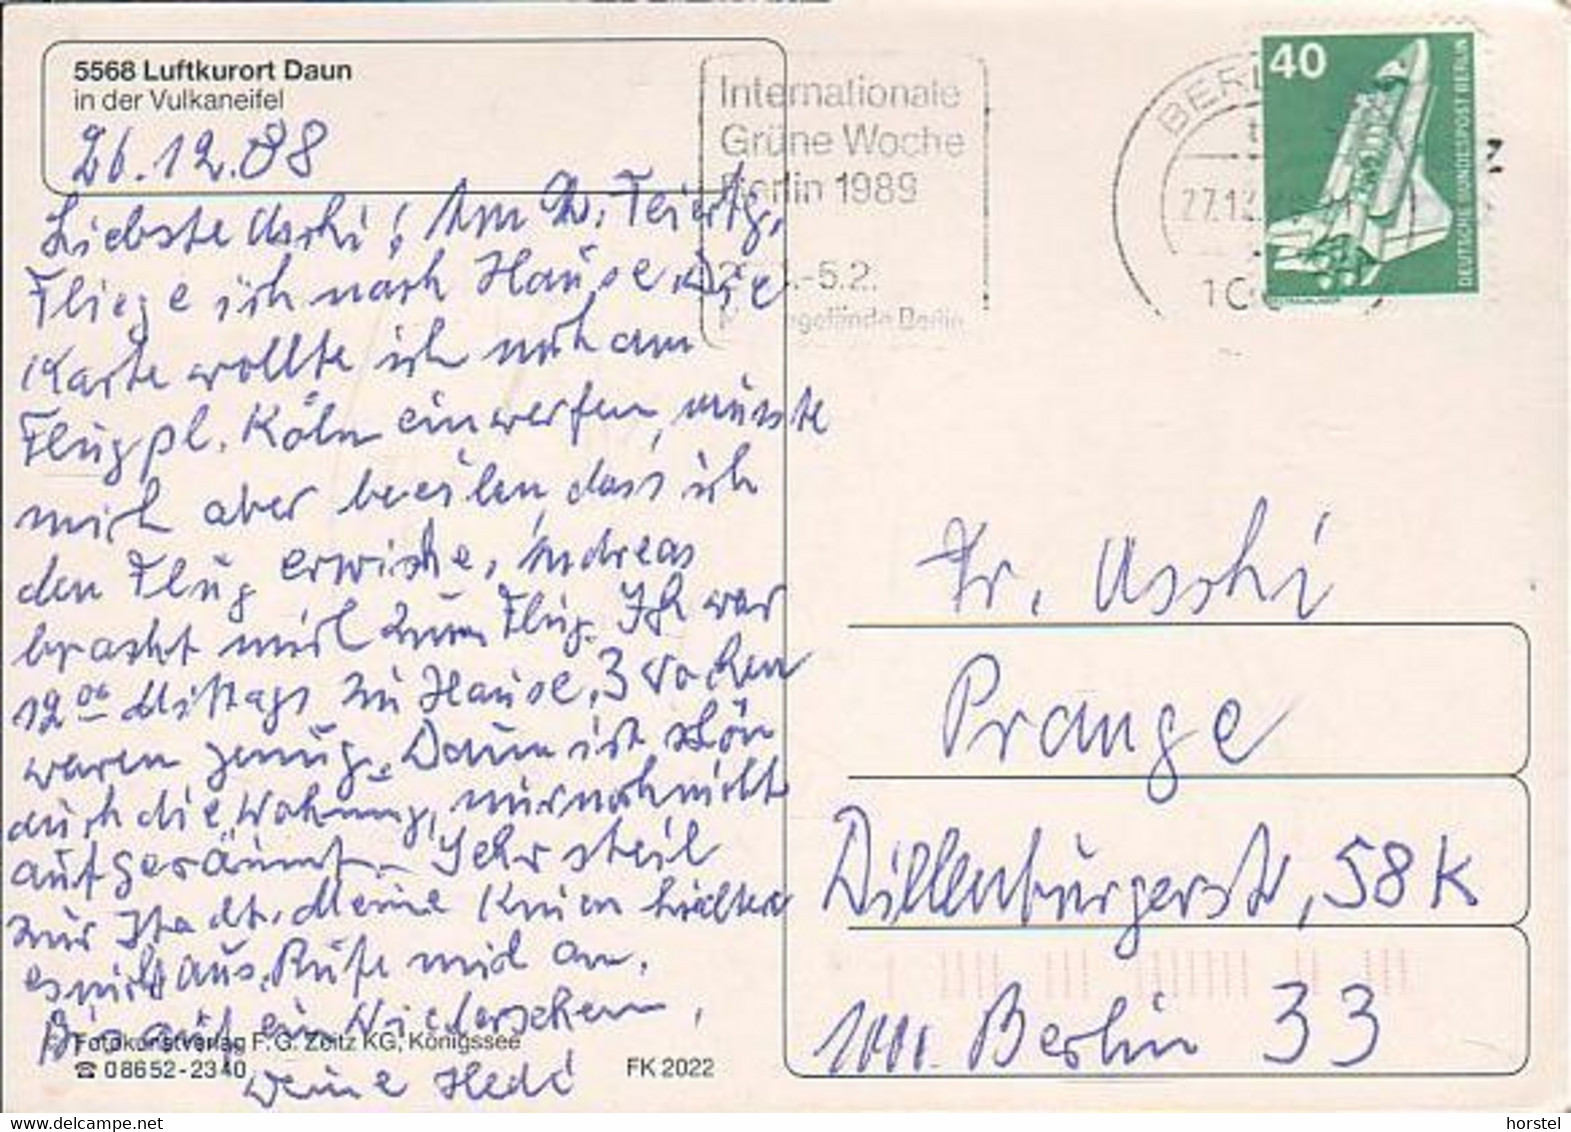 5568 Luftkurort Daun
in der Vulkaneifel
26.12.88
Liebste Uschi! Am 2. Feiertg.
Fliege ich nach Hause. Die
Karte wollte ich noch am
Flugpl. Köln einwerfen, musste
mich aber beeilen, dass ich
den Flug erwische. Andreas
bracht mich zum Flug. Ich war
12 00 Mittags zu Hause. 3 Wochen
waren genug. Daun ist schön
auch die Wohnung, nur noch nicht
aufgeräumt. Sehr steil
zur Stadt. Meine Knien hielten
es nicht aus. Rufe mich an.
Bis auf ein Wiedersehen,
Deine Hedi
Fotokunstverlag F.G. Zeitz KG, Königssee
☎ 08652-2340
FK 2022
Internationale
Grüne Woche
Berlin 1989
-5.2.
Berlin
BERLIN
27.12.
40
DEUTSCHE BUNDESPOST BERLIN
Fr. Uschi
Prange
Dillenburgerst, 58K
1000 Berlin 33
www.delcampe.net
horstel